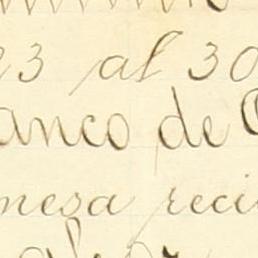 23 al 30
anco de
mesa reci